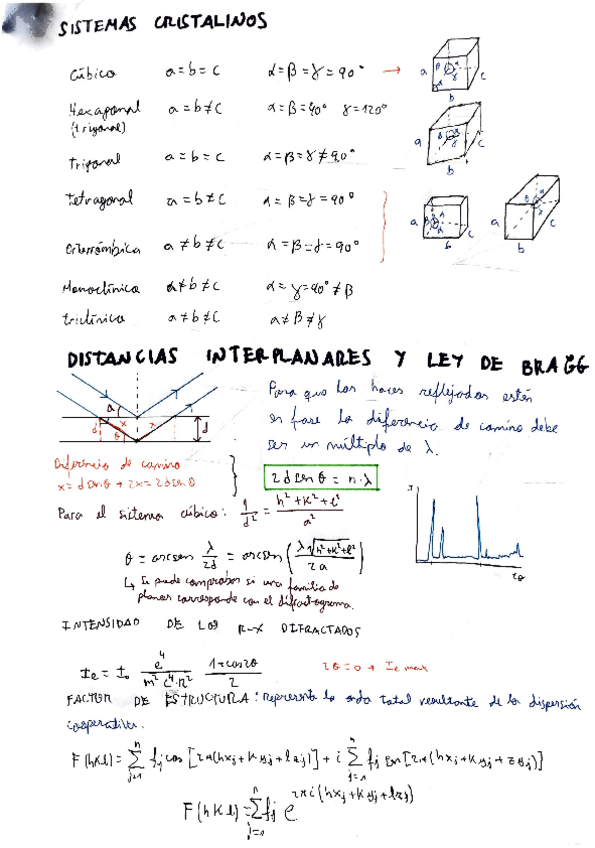 SISTEMAS CRISTALINOS
Cúbico a = b = c α = β = γ = 90° →
Hexagonal (trigonal) a = b ≠ c α = β = 90° γ = 120°
Trigonal a = b = c α = β = γ ≠ 90°
Tetragonal a = b ≠ c α = β = γ = 90°
Ortorrómbica a ≠ b ≠ c α = β = γ = 90°
Monoclínica a ≠ b ≠ c α = γ = 90° ≠ β
triclínica a ≠ b ≠ c α ≠ β ≠ γ
a b c
a b c
a b c
a b c
DISTANCIAS INTERPLANARES Y LEY DE BRAGG
Para que los haces reflejados estén
en fase la diferencia de camino debe
ser un múltiplo de λ.
d x x θ d
Diferencia de camino
x = d senθ → 2x = 2d senθ
2d senθ = n·λ
Para el sistema cúbico: 1/d² = (h² + k² + l²)/a²
θ = arcsen λ/2d = arcsen (λ√(h²+k²+l²)/2a)
↳ Se puede comprobar si una familia de
planos corresponde con el difractograma.
I 2θ
INTENSIDAD DE LOS R-X DIFRACTADOS
Ie = I₀ e⁴/(m² c⁴ r²) (1+cos2θ)/2 2θ = 0 → Ie max
FACTOR DE ESTRUCTURA: representa la onda total resultante de la dispersión
cooperativa.
F(hkl) = Σ fj cos [2π(hxj + kyj + lzj)] + i Σ fj sen [2π(hxj + kyj + zyj)]
F(hkl) = Σ fj e^2πi(hxj + kyj + lzj)